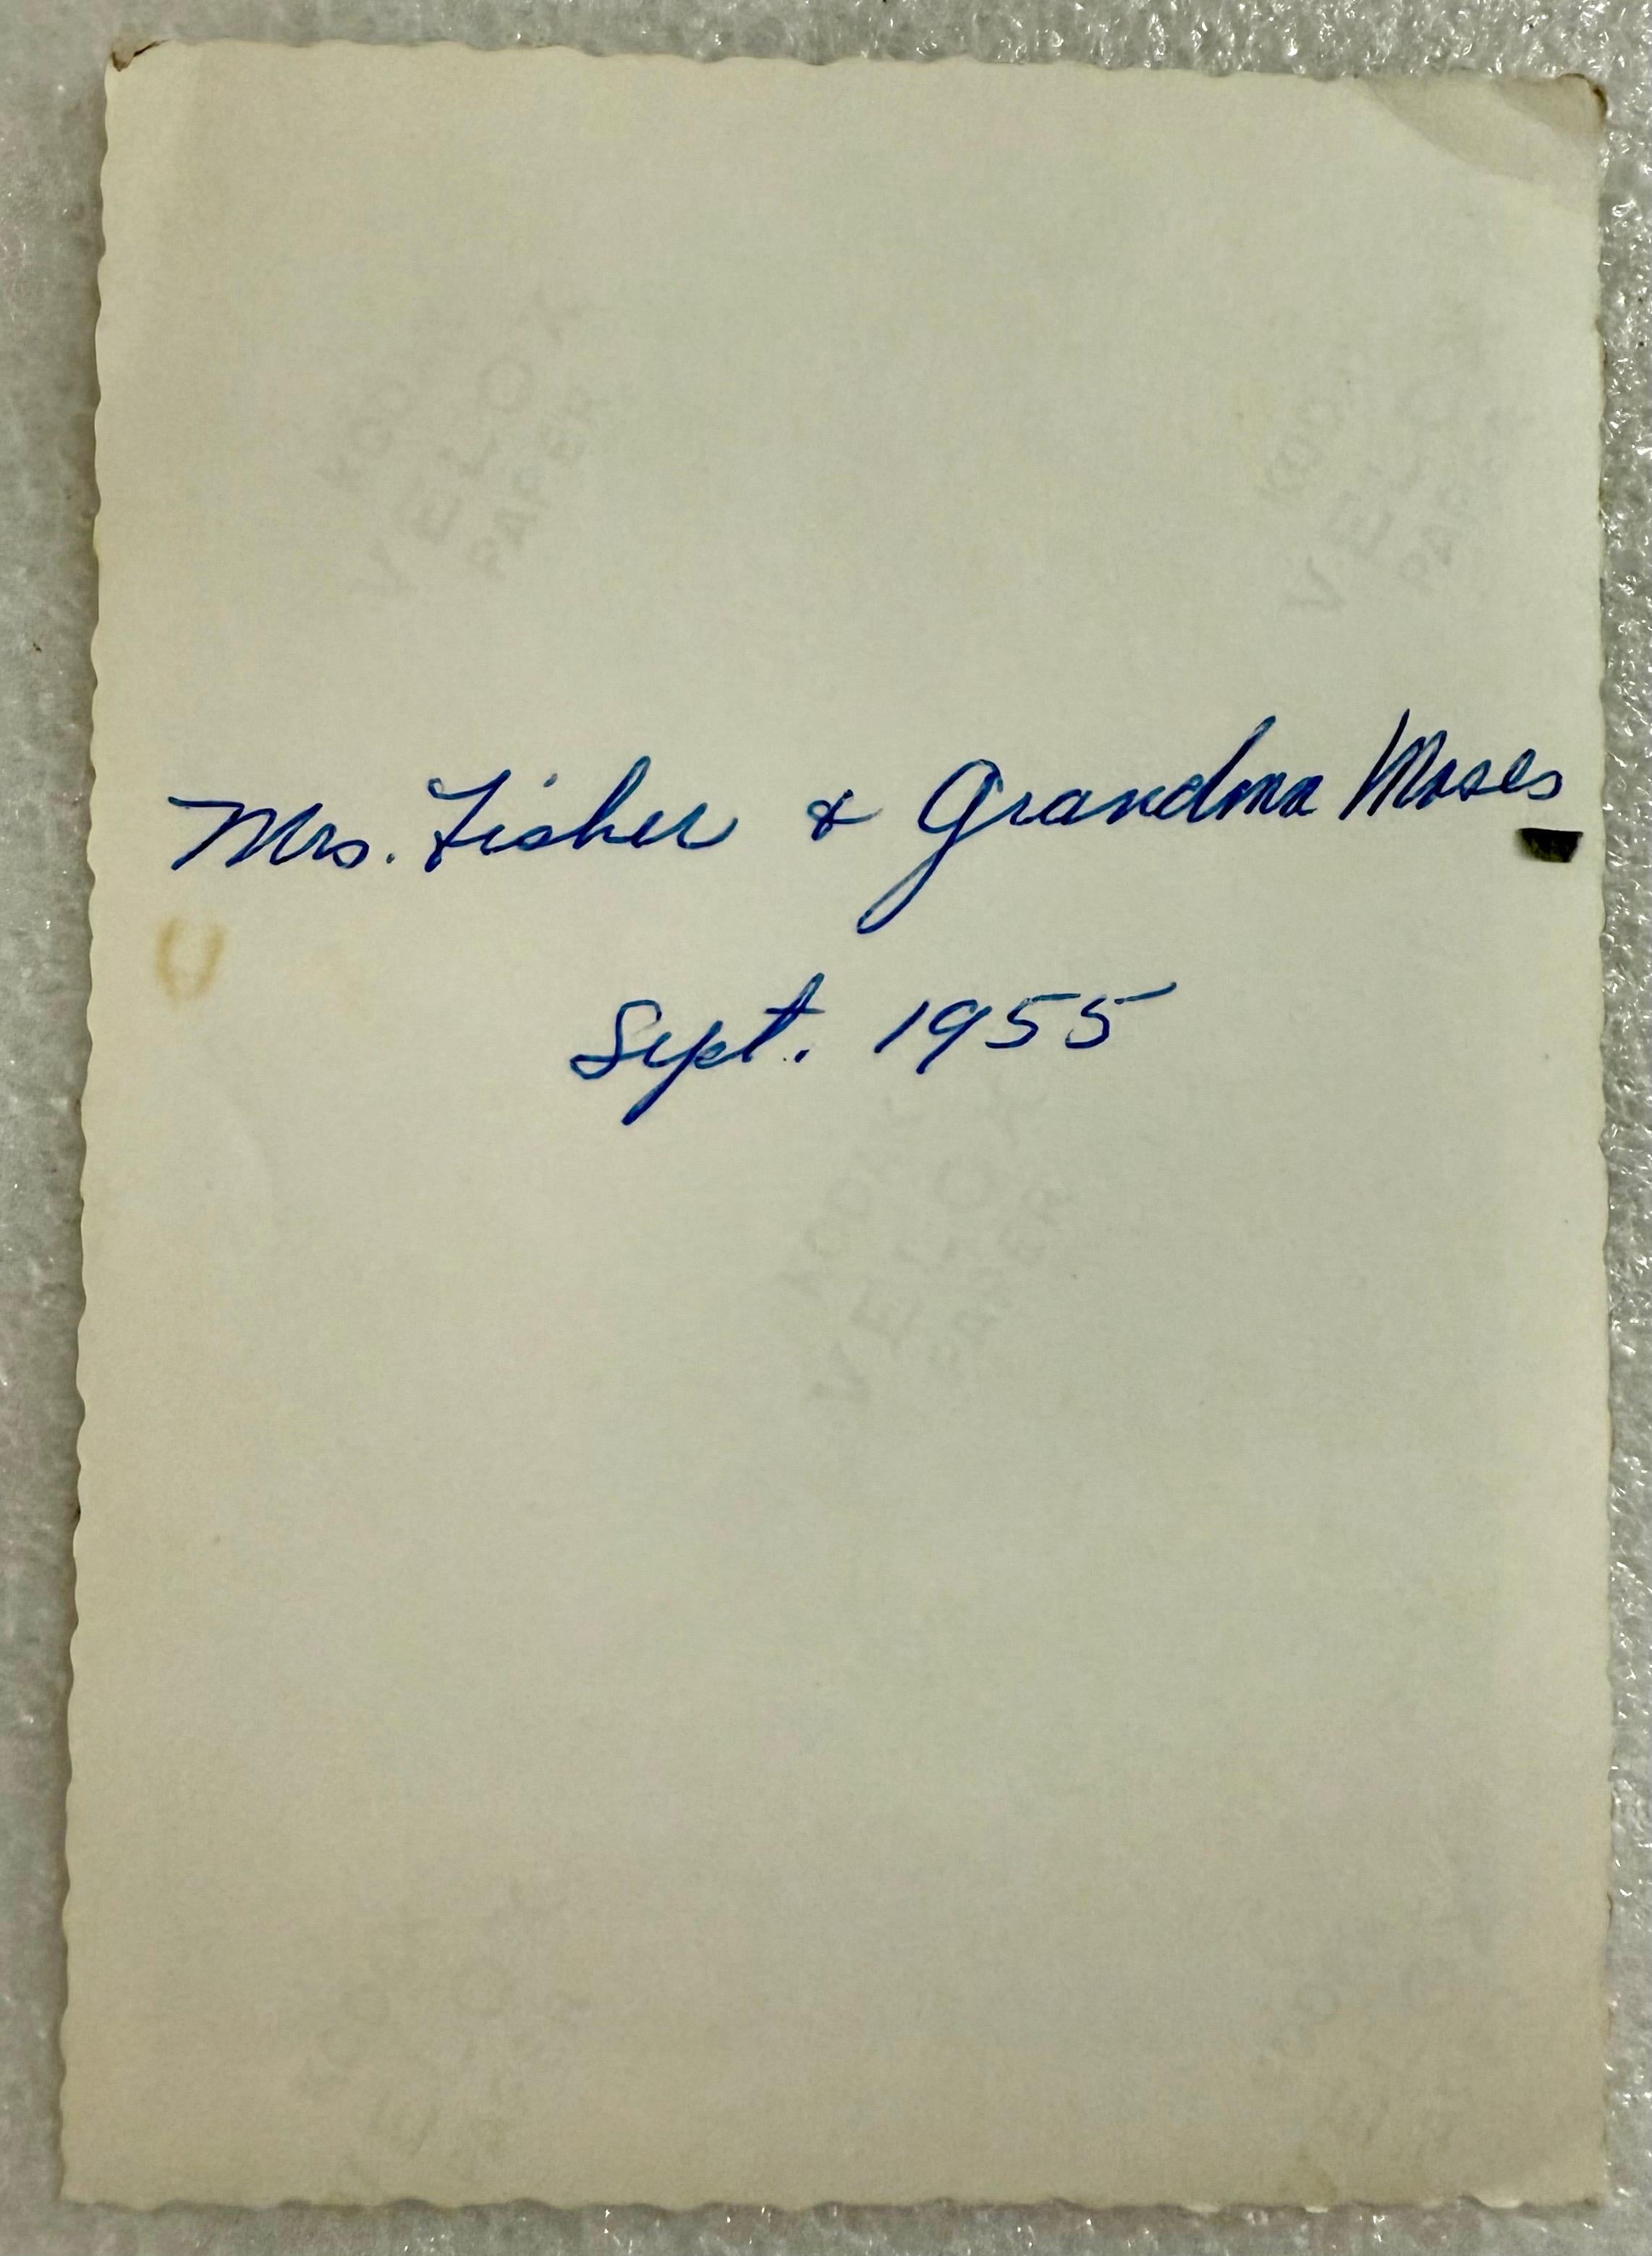 Mrs. Fisher & Grandma Moses
Sept. 1955
VELOX
PAPER
VELOX
KODAK
VELOX
PAPER